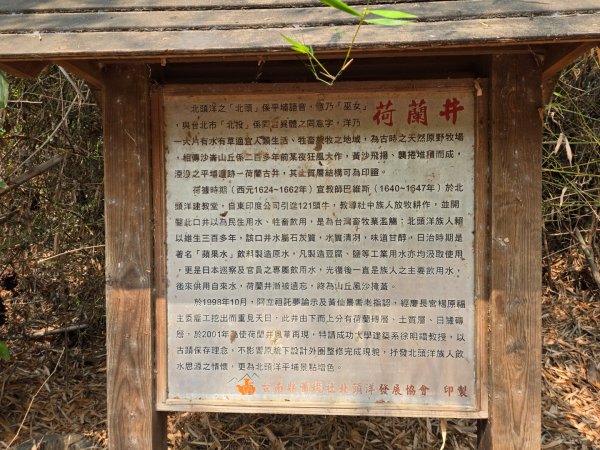 荷蘭井
北頭洋之「北頭」係平埔語音，意乃「巫女」
與台北市「北投」係同音異體之同意字，洋乃
一大片有水有草適宜人類生活、牲畜放牧之地域，為古時之天然原野牧場
，相傳沙崙山丘係二百多年前某夜狂風大作，黃沙飛揚，襲捲堆積而成，
湮沒之平埔遺跡—荷蘭古井，其土質層結構可為印證。
荷據時期（西元1624~1662年）宣教師巴維斯（1640~1647年）於北
頭洋建教堂，自東印度公司引進121頭牛，教導社中族人放牧耕作，並開
鑿此口井以為民生用水、牲畜飲用，是為台灣畜牧業濫觴；北頭洋族人賴
以維生三百多年，該口井水腦石灰質，水質清冽，味道甘醇，日治時期是
著名「蘋果水」飲料製造原水，凡製造豆腐、鹽等工業用水亦均汲取使用
，更是日本巡察及官員之專屬飲用水，光復後一直是族人之主要飲用水，
後來供用自來水，荷蘭井漸被遺忘，終為山丘風沙掩蓋。
於1998年10月，阿立祖託夢諭示及黃仙景耆老指認，經慶長宮楊原福
主委雇工挖出而重見天日，此井由下而上分有荷蘭磚層、土質層、日據磚
層，於2001年為使荷蘭井風華再現，特請成功大學建築系徐明福教授，以
古蹟保存理念，不影響原貌下設計外圈整修完成現貌，抒發北頭洋族人飲
水思源之情懷，更為北頭洋平埔景點增色。
台南縣蕭壠社北頭洋發展協會 印製